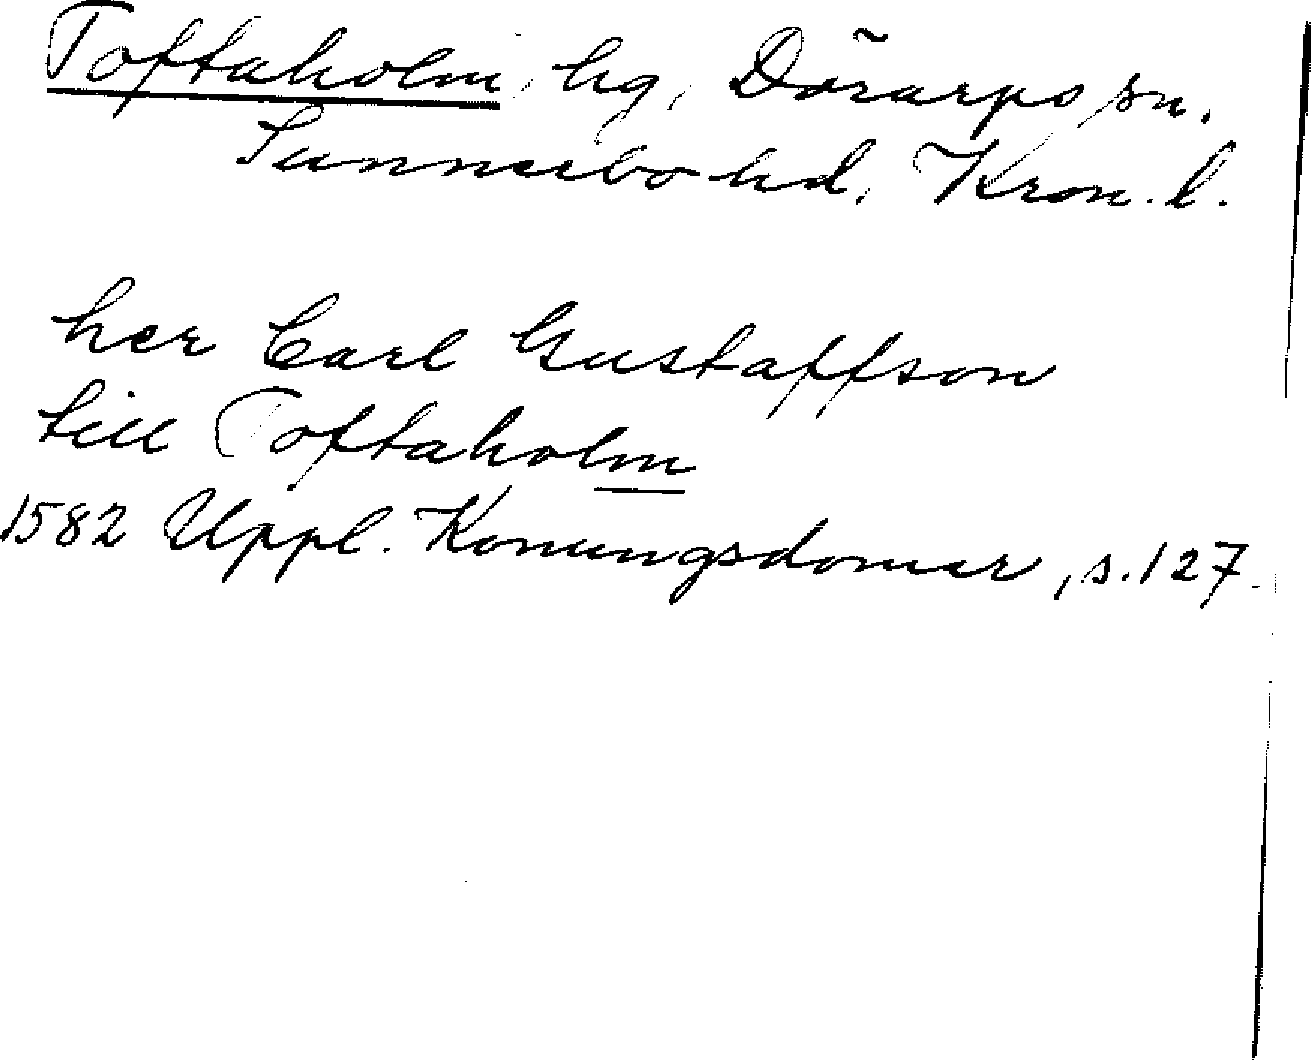 Toftaholm, hg, Dörarps sn.
Sunnerbo hd, Kron. l.
her Carl Gustaffson
till Toftaholm
1582 Uppl. Konungsdomar, s. 127.